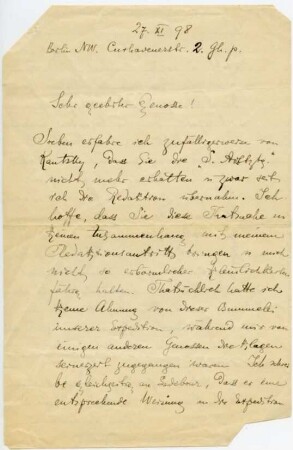 27. XI 98
Berlin NW. Cuxhavenerstr. 2. Gh. p.
Sehr geehrter Genosse!
Soeben erfahre ich zufälligerweise von
Kautsky, dass Sie die "S. Arbztg"
nicht mehr erhalten u. zwar seit
ich die Redaktion übernahm. Ich
hoffe, dass Sie diese Tatsache in
keinen Zusammenhang mit meinem
Redaktionsantritt bringen u. mich
nicht so erbärmlicher
fähig halten. Thatsächlich hatte ich
keine Ahnung von dieser Bummelei
unserer Expedition, während mir von
einigen anderen Genossen die Klagen
seinerzeit zugegangen waren. Ich schrei-
be gleichzeitig an Ledebour, dass er eine
entsprechende Weisung an die Expedition